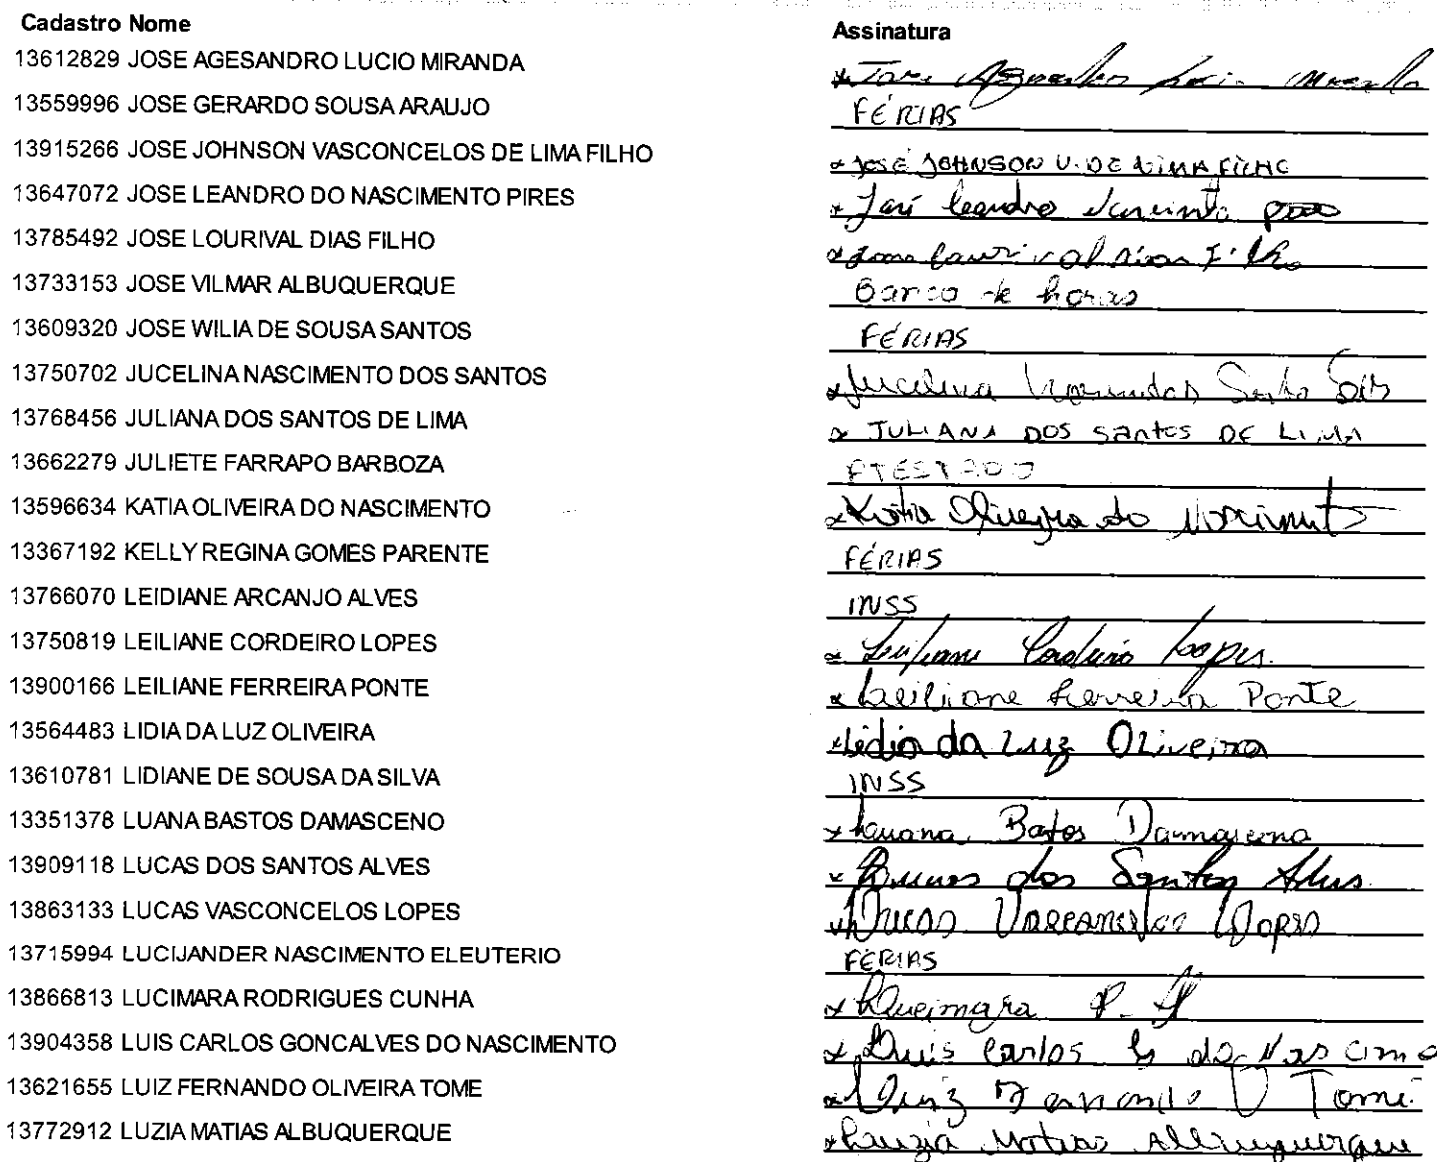 Cadastro Nome Assinatura
13612829 JOSE AGESANDRO LUCIO MIRANDA
13559996 JOSE GERARDO SOUSA ARAUJO FÉRIAS
13915266 JOSE JOHNSON VASCONCELOS DE LIMA FILHO JOSÉ JOHNSON V. DE LIMA FILHO
13647072 JOSE LEANDRO DO NASCIMENTO PIRES José Leandro
13785492 JOSE LOURIVAL DIAS FILHO
13733153 JOSE VILMAR ALBUQUERQUE Banco de horas
13609320 JOSE WILIA DE SOUSA SANTOS FÉRIAS
13750702 JUCELINA NASCIMENTO DOS SANTOS Jucelina
13768456 JULIANA DOS SANTOS DE LIMA JULIANA DOS SANTOS DE LIMA
13662279 JULIETE FARRAPO BARBOZA ATESTADO
13596634 KATIA OLIVEIRA DO NASCIMENTO Katia Oliveira do Nascimento
13367192 KELLY REGINA GOMES PARENTE FÉRIAS
13766070 LEIDIANE ARCANJO ALVES INSS
13750819 LEILIANE CORDEIRO LOPES Leiliane Cordeiro Lopes
13900166 LEILIANE FERREIRA PONTE Leiliane Ferreira Ponte
13564483 LIDIA DA LUZ OLIVEIRA Lidia da Luz Oliveira
13610781 LIDIANE DE SOUSA DA SILVA INSS
13351378 LUANA BASTOS DAMASCENO Luana Bastos Damasceno
13909118 LUCAS DOS SANTOS ALVES Lucas dos Santos Alves
13863133 LUCAS VASCONCELOS LOPES Lucas Vasconcelos Lopes
13715994 LUCIJANDER NASCIMENTO ELEUTERIO FÉRIAS
13866813 LUCIMARA RODRIGUES CUNHA Lucimara
13904358 LUIS CARLOS GONCALVES DO NASCIMENTO Luis Carlos G do Nascimo
13621655 LUIZ FERNANDO OLIVEIRA TOME Luiz Fernando O Tomé
13772912 LUZIA MATIAS ALBUQUERQUE Luzia Matias Albuquerque